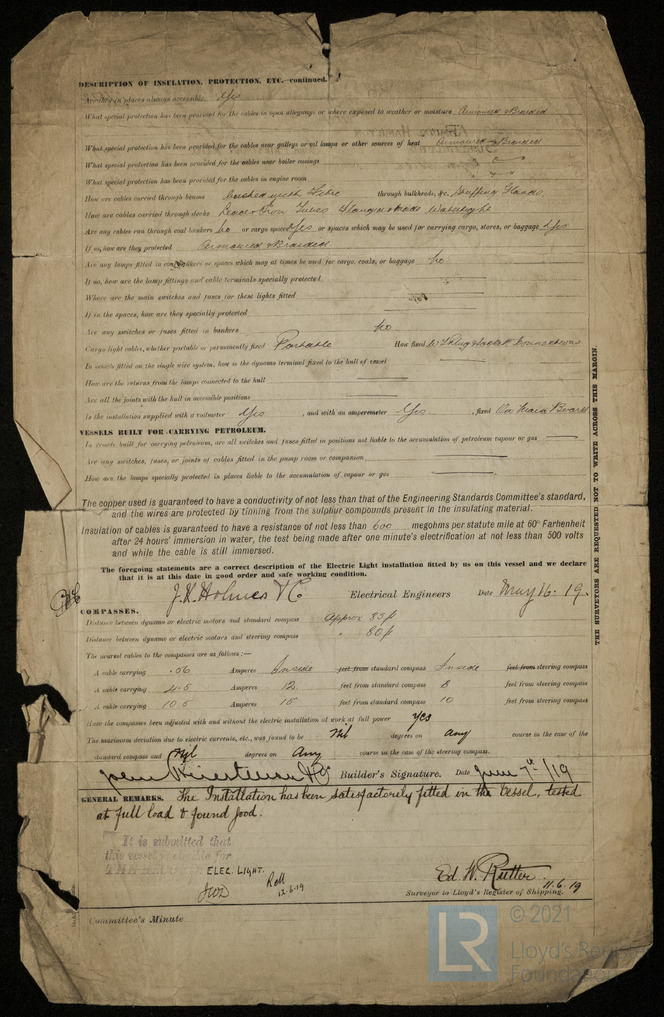 DESCRIPTION OF INSULATION, PROTECTION, ETC.—continued.
in places always accessible Yes
What special protection has been provided for the cables in open alleyways or where exposed to weather or moisture Armoured & Braided
What special protection has been provided for the cables near galleys or oil lamps or other sources of heat Armoured & Braided
What special protection has been provided for the cables near boiler casings "
What special protection has been provided for the cables in engine room "
How are cables carried through beams Bushed with Fibre through bulkheads, &c. Stuffing Glands
How are cables carried through decks Iron Tubes Watertight
Are any cables run through coal bunkers No or cargo spaces Yes or spaces which may be used for carrying cargo, stores, or baggage Yes
If so, how are they protected Armoured & Braided
Are any lamps fitted in coal bunkers or spaces which may at times be used for cargo, coals, or baggage No
If so, how are the lamp fittings and cable terminals specially protected
Where are the main switches and fuses for these lights fitted
If in the spaces, how are they specially protected
Are any switches or fuses fitted in bunkers No
Cargo light cables, whether portable or permanently fixed Portable How fixed W.T. Plug & Socket Connections
In vessels fitted on the single wire system, how is the dynamo terminal fixed to the hull of vessel
How are the returns from the lamps connected to the hull
Are all the joints with the hull in accessible positions
Is the installation supplied with a voltmeter Yes , and with an amperemeter Yes , fixed On Main Board
VESSELS BUILT FOR CARRYING PETROLEUM.
In vessels built for carrying petroleum, are all switches and fuses fitted in positions not liable to the accumulation of petroleum vapour or gas
Are any switches, fuses, or joints of cables fitted in the pump room or companion
How are the lamps specially protected in places liable to the accumulation of vapour or gas
The copper used is guaranteed to have a conductivity of not less than that of the Engineering Standards Committee's standard,
and the wires are protected by tinning from the sulphur compounds present in the insulating material.
Insulation of cables is guaranteed to have a resistance of not less than 600 megohms per statute mile at 60° Farhenheit
after 24 hours' immersion in water, the test being made after one minute's electrification at not less than 500 volts
and while the cable is still immersed.
The foregoing statements are a correct description of the Electric Light installation fitted by us on this vessel and we declare
that it is at this date in good order and safe working condition.
J.H. Holmes & Co Electrical Engineers Date May 16. 19.
COMPASSES.
Distance between dynamo or electric motors and standard compass Approx 85 ft
Distance between dynamo or electric motors and steering compass " 80 ft
The nearest cables to the compasses are as follows:—
A cable carrying .06 Amperes Inside feet from standard compass Inside feet from steering compass
A cable carrying 4.5 Amperes 12 feet from standard compass 8 feet from steering compass
A cable carrying 10.5 Amperes 15 feet from standard compass 10 feet from steering compass
Have the compasses been adjusted with and without the electric installation at work at full power Yes
The maximum deviation due to electric currents, etc., was found to be Nil degrees on any course in the case of the
standard compass and Nil degrees on Any course in the case of the steering compass.
Builder's Signature. Date June 7th /19
GENERAL REMARKS. The Installation has been satisfactorily fitted in the Vessel, tested
at full load & found good.
It is submitted that
this vessel is eligible for
ELEC. LIGHT.
12.6.19
Ed. W. Rutter.
Surveyor to Lloyd's Register of Shipping. 11.6.19
Committee's Minute
THE SURVEYORS ARE REQUESTED NOT TO WRITE ACROSS THIS MARGIN.
LR
© 2021
Lloyd's Register
Foundation